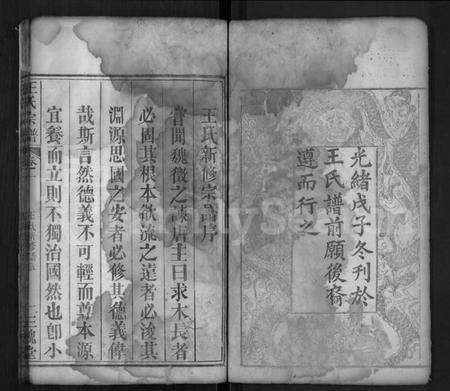 光緒戊子冬刊於
王氏譜前願後裔
遵而行之
王氏新修宗譜序
嘗聞魏徵之諫唐主曰求木長者
必固其根本欲流之遠者必浚其
淵源思國之安者必修其德義偉
哉斯言然德義不可輕而尊本源
宜餐而立則不獨治國然也卽小
王氏宗譜
卷一
三槐堂